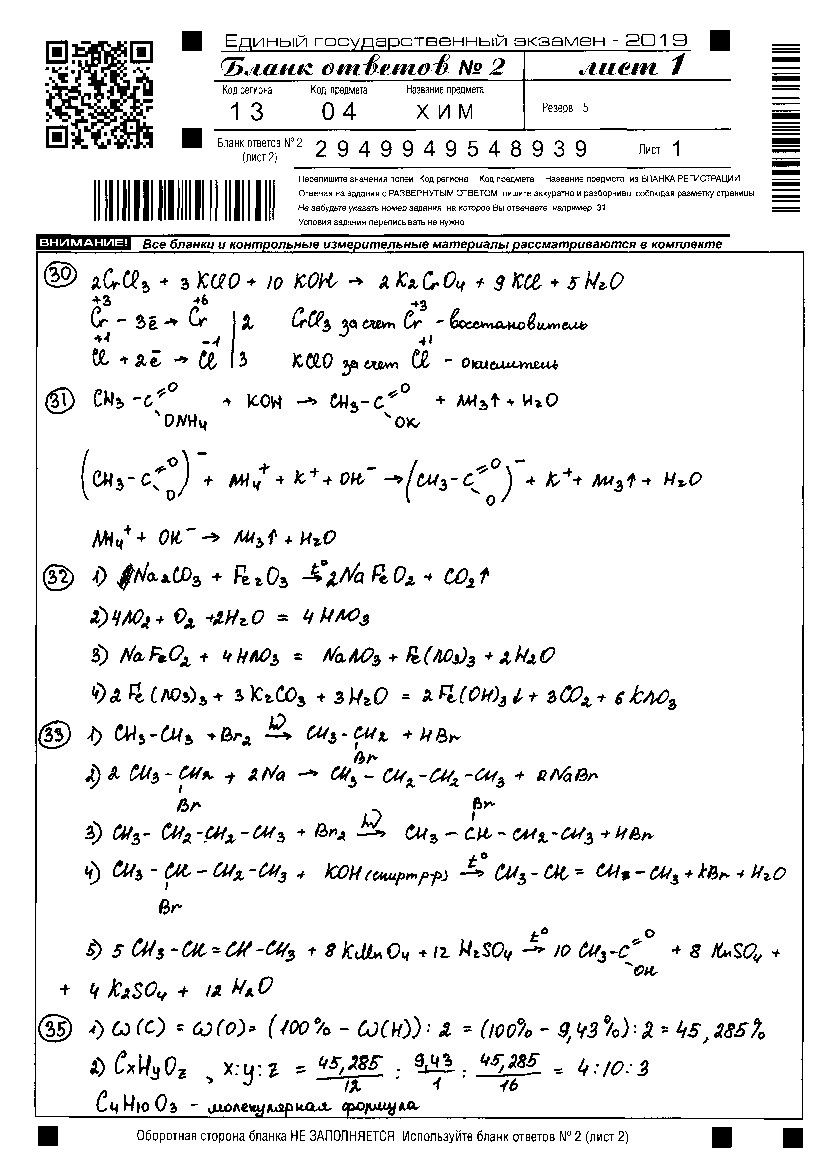 Единый государственный экзамен - 2019
Бланк ответов № 2 лист 1
Код региона Код предмета Название предмета
13 04 ХИМ Резерв 5
Бланк ответов № 2 (лист 2) 2949949548939 Лист 1
Перепишите значения полей Код региона Код предмета Название предмета из БЛАНКА РЕГИСТРАЦИИ
Отвечая на задания с РАЗВЕРНУТЫМ ОТВЕТОМ пишите аккуратно и разборчиво соблюдая разметку страницы
Не забудьте указать номер задания на которое Вы отвечаете например 31
Условия задания переписывать не нужно
ВНИМАНИЕ! Все бланки и контрольные измерительные материалы рассматриваются в комплекте
30 2CrCl3 + 3KClO + 10 KOH → 2K2CrO4 + 9KCl + 5H2O
+3 +6 +3
Cr - 3ē → Cr | 2 CrCl3 за счет Cr - восстановитель
+1 -1 +1
Cl + 2ē → Cl | 3 KClO за счет Cl - окислитель
31 CH3 - C =O + KOH → CH3 - C =O + NH3↑ + H2O
ONH4 OK
(CH3 - C =O O)⁻ + NH4⁺ + K⁺ + OH⁻ → (CH3 - C =O O)⁻ + K⁺ + NH3↑ + H2O
NH4⁺ + OH⁻ → NH3↑ + H2O
32 1) Na2CO3 + Fe2O3 t°→ 2NaFeO2 + CO2↑
2) 4NO2 + O2 + 2H2O = 4HNO3
3) NaFeO2 + 4HNO3 = NaNO3 + Fe(NO3)3 + 2H2O
4) 2Fe(NO3)3 + 3K2CO3 + 3H2O = 2Fe(OH)3↓ + 3CO2 + 6KNO3
33 1) CH3-CH3 + Br2 hν→ CH3-CH2 + HBr
Br
2) 2 CH3 - CH2 + 2Na → CH3 - CH2 - CH2 - CH3 + 2NaBr
Br Br
3) CH3 - CH2 - CH2 - CH3 + Br2 hν→ CH3 - CH - CH2 - CH3 + HBr
4) CH3 - CH - CH2 - CH3 + KOH (спирт р-р) t°→ CH3 - CH = CH - CH3 + KBr + H2O
Br
5) 5 CH3 - CH = CH - CH3 + 8KMnO4 + 12 H2SO4 t°→ 10 CH3 - C =O + 8 MnSO4 +
OH
+ 4 K2SO4 + 12 H2O
35 1) ω(C) = ω(O) = (100% - ω(H)) : 2 = (100% - 9,43%) : 2 = 45,285%
2) CxHyOz , x:y:z = 45,285/12 : 9,43/1 : 45,285/16 = 4:10:3
C4H10O3 - молекулярная формула
Оборотная сторона бланка НЕ ЗАПОЛНЯЕТСЯ Используйте бланк ответов № 2 (лист 2)